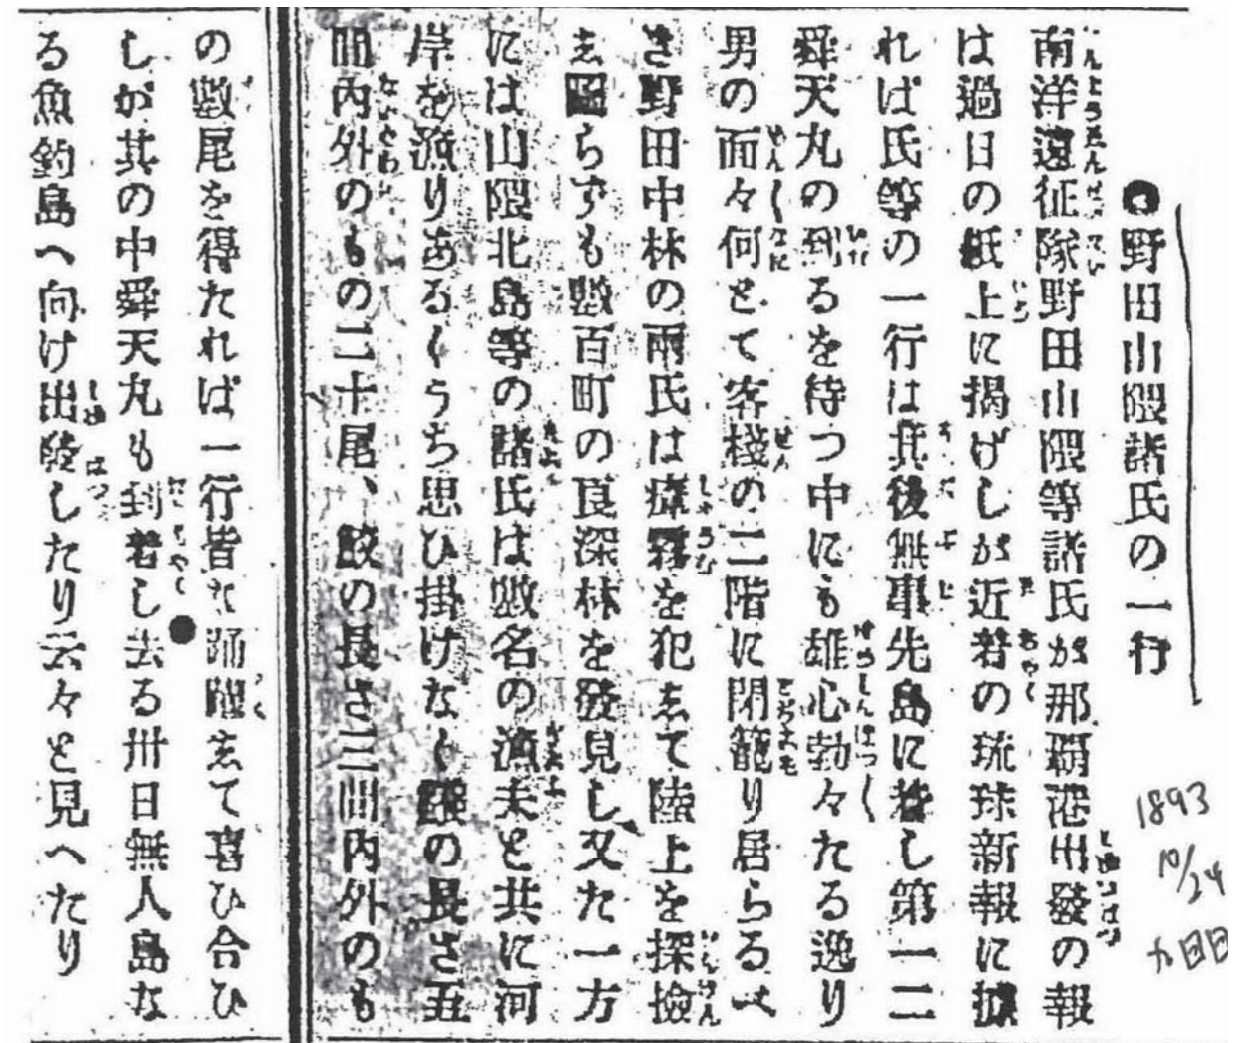 ●野田山隈諸氏の一行
南洋遠征隊野田山隈等諸氏が那覇港出發の報
は過日の紙上に揭げしが近着の琉球新報に據
れば氏等の一行は其後無事先島に着し第一二
舜天丸の到るを待つ中にも雄心勃々たる逸り
男の面々何とて客棧の二階に閉籠り居らるべ
き野田中林の兩氏は瘴霧を犯ゑて陸上を探撿
ゑ圖らずも數百町の良深林を發見し又た一方
には山隈北島等の諸氏は數名の漁夫と共に河
岸を漁りあるくうち思ひ掛けなく の長さ五
間內外のもの二十尾、鮫の長さ三間內外のも
の數尾を得たれば一行皆な踊躍ゑて喜ひ合ひ
しが其の中舜天丸も到着し去る卅日無人島な
る魚釣島へ向け出發したり云々と見へたり
1893
10/24
九日日